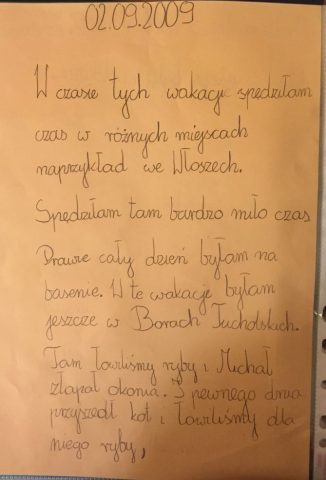 02.09.2009
W czasie tych wakacji spędziłam
czas w różnych miejscach
naprzykład we Włoszech.
Spędziłam tam bardzo miło czas
Prawie cały dzień byłam na
basenie. W te wakacje byłam
jeszcze w Borach Tucholskich.
Tam łowiliśmy ryby i Michał
złapał okonia. I pewnego dnia
przyszedł kot i łowiliśmy dla
niego ryby,